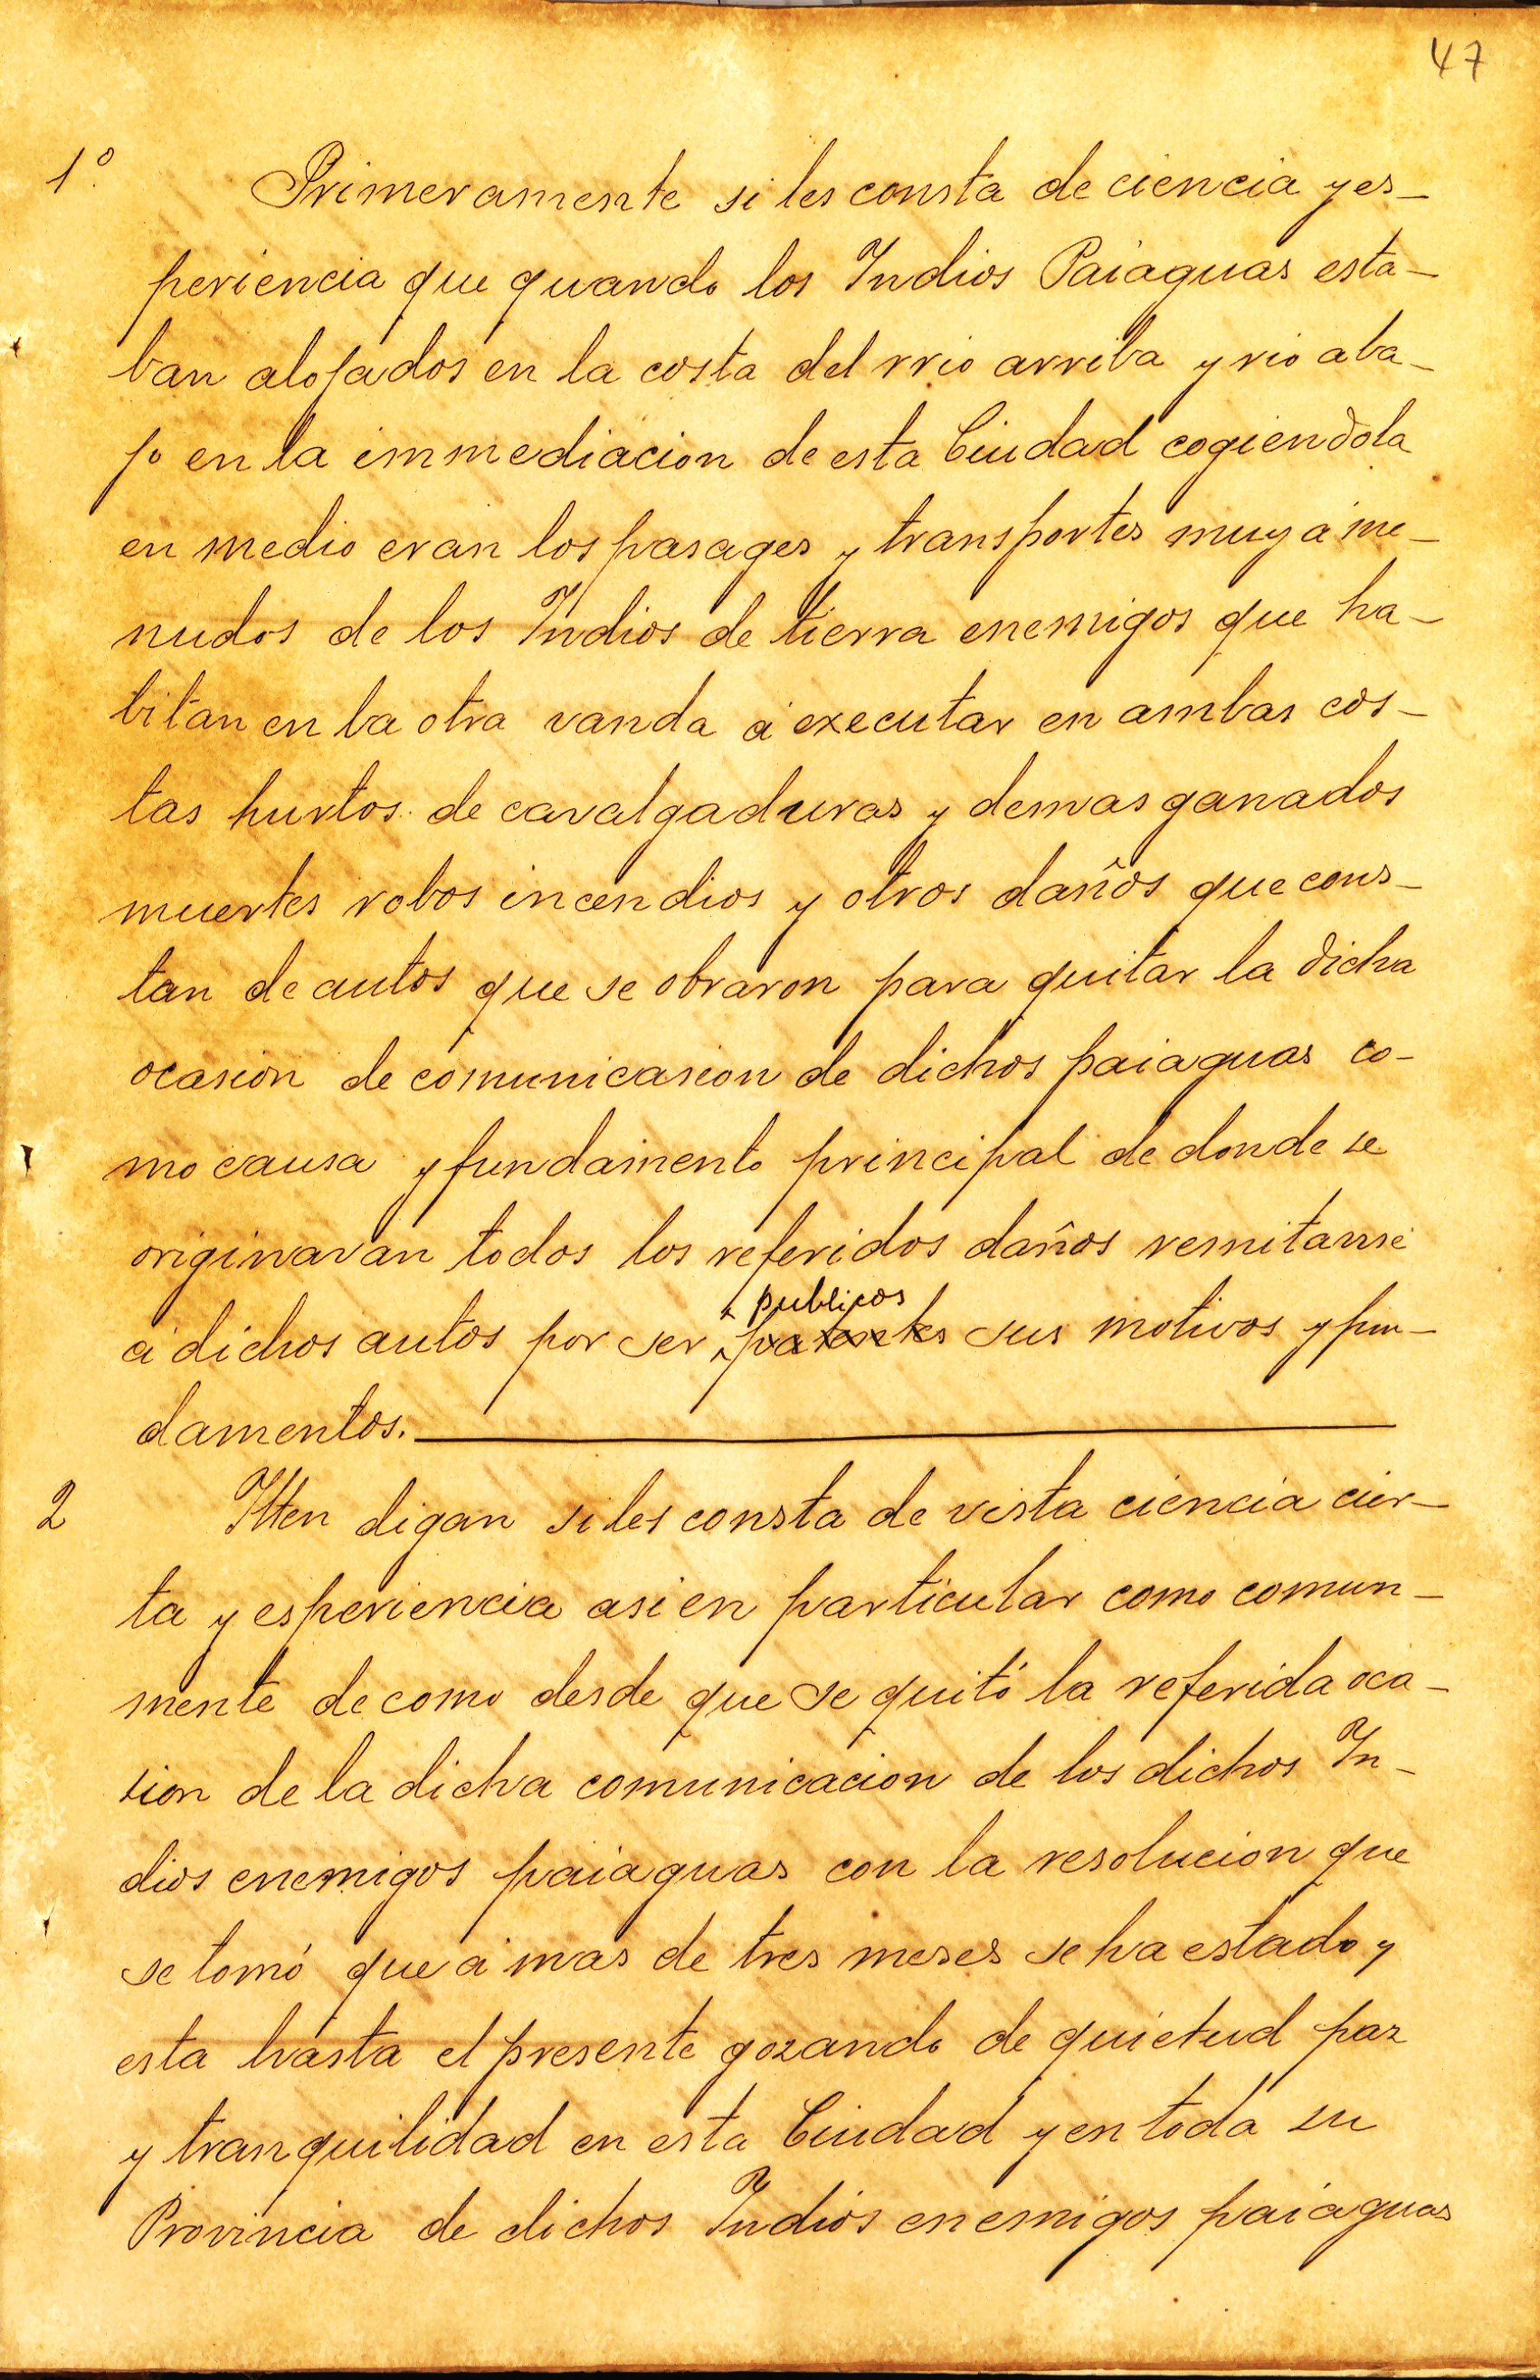 47
1º. Primeramente si les consta de ciencia y es-
periencia que quando los Indios Paiaguas esta-
ban alojados en la costa del rrio arriba y rio aba-
jo en la immediacion de esta Ciudad cogiendola
en medio eran los pasages y transportes muy á me-
nudos de los Indios de tierra enemigos que ha-
bitan en la otra vanda á executar en ambas cos-
tas hurtos de cavalgaduras y demas ganados
muertes robos incendios y otros daños que cons-
tan de autos que se obraron para quitar la dicha
ocasion de comunicasion de dichos paiaguas co-
mo causa y fundamento principal de donde se
originavan todos los referidos daños remitanse
publicos
á dichos autos por ser patentes sus motivos y fun-
damentos.
2 Itten digan si les consta de vista ciencia cier-
ta y esperiencia asi en particular como comun-
mente de como desde que se quitó la referida oca-
sion de la dicha comunicacion de los dichos In-
dios enemigos paiaguas con la resolucion que
se tomó que á mas de tres meses se ha estado y
esta hasta el presente gozando de quietud paz
y tranquilidad en esta Ciudad y en toda su
Provincia de dichos Indios enemigos paiaguas